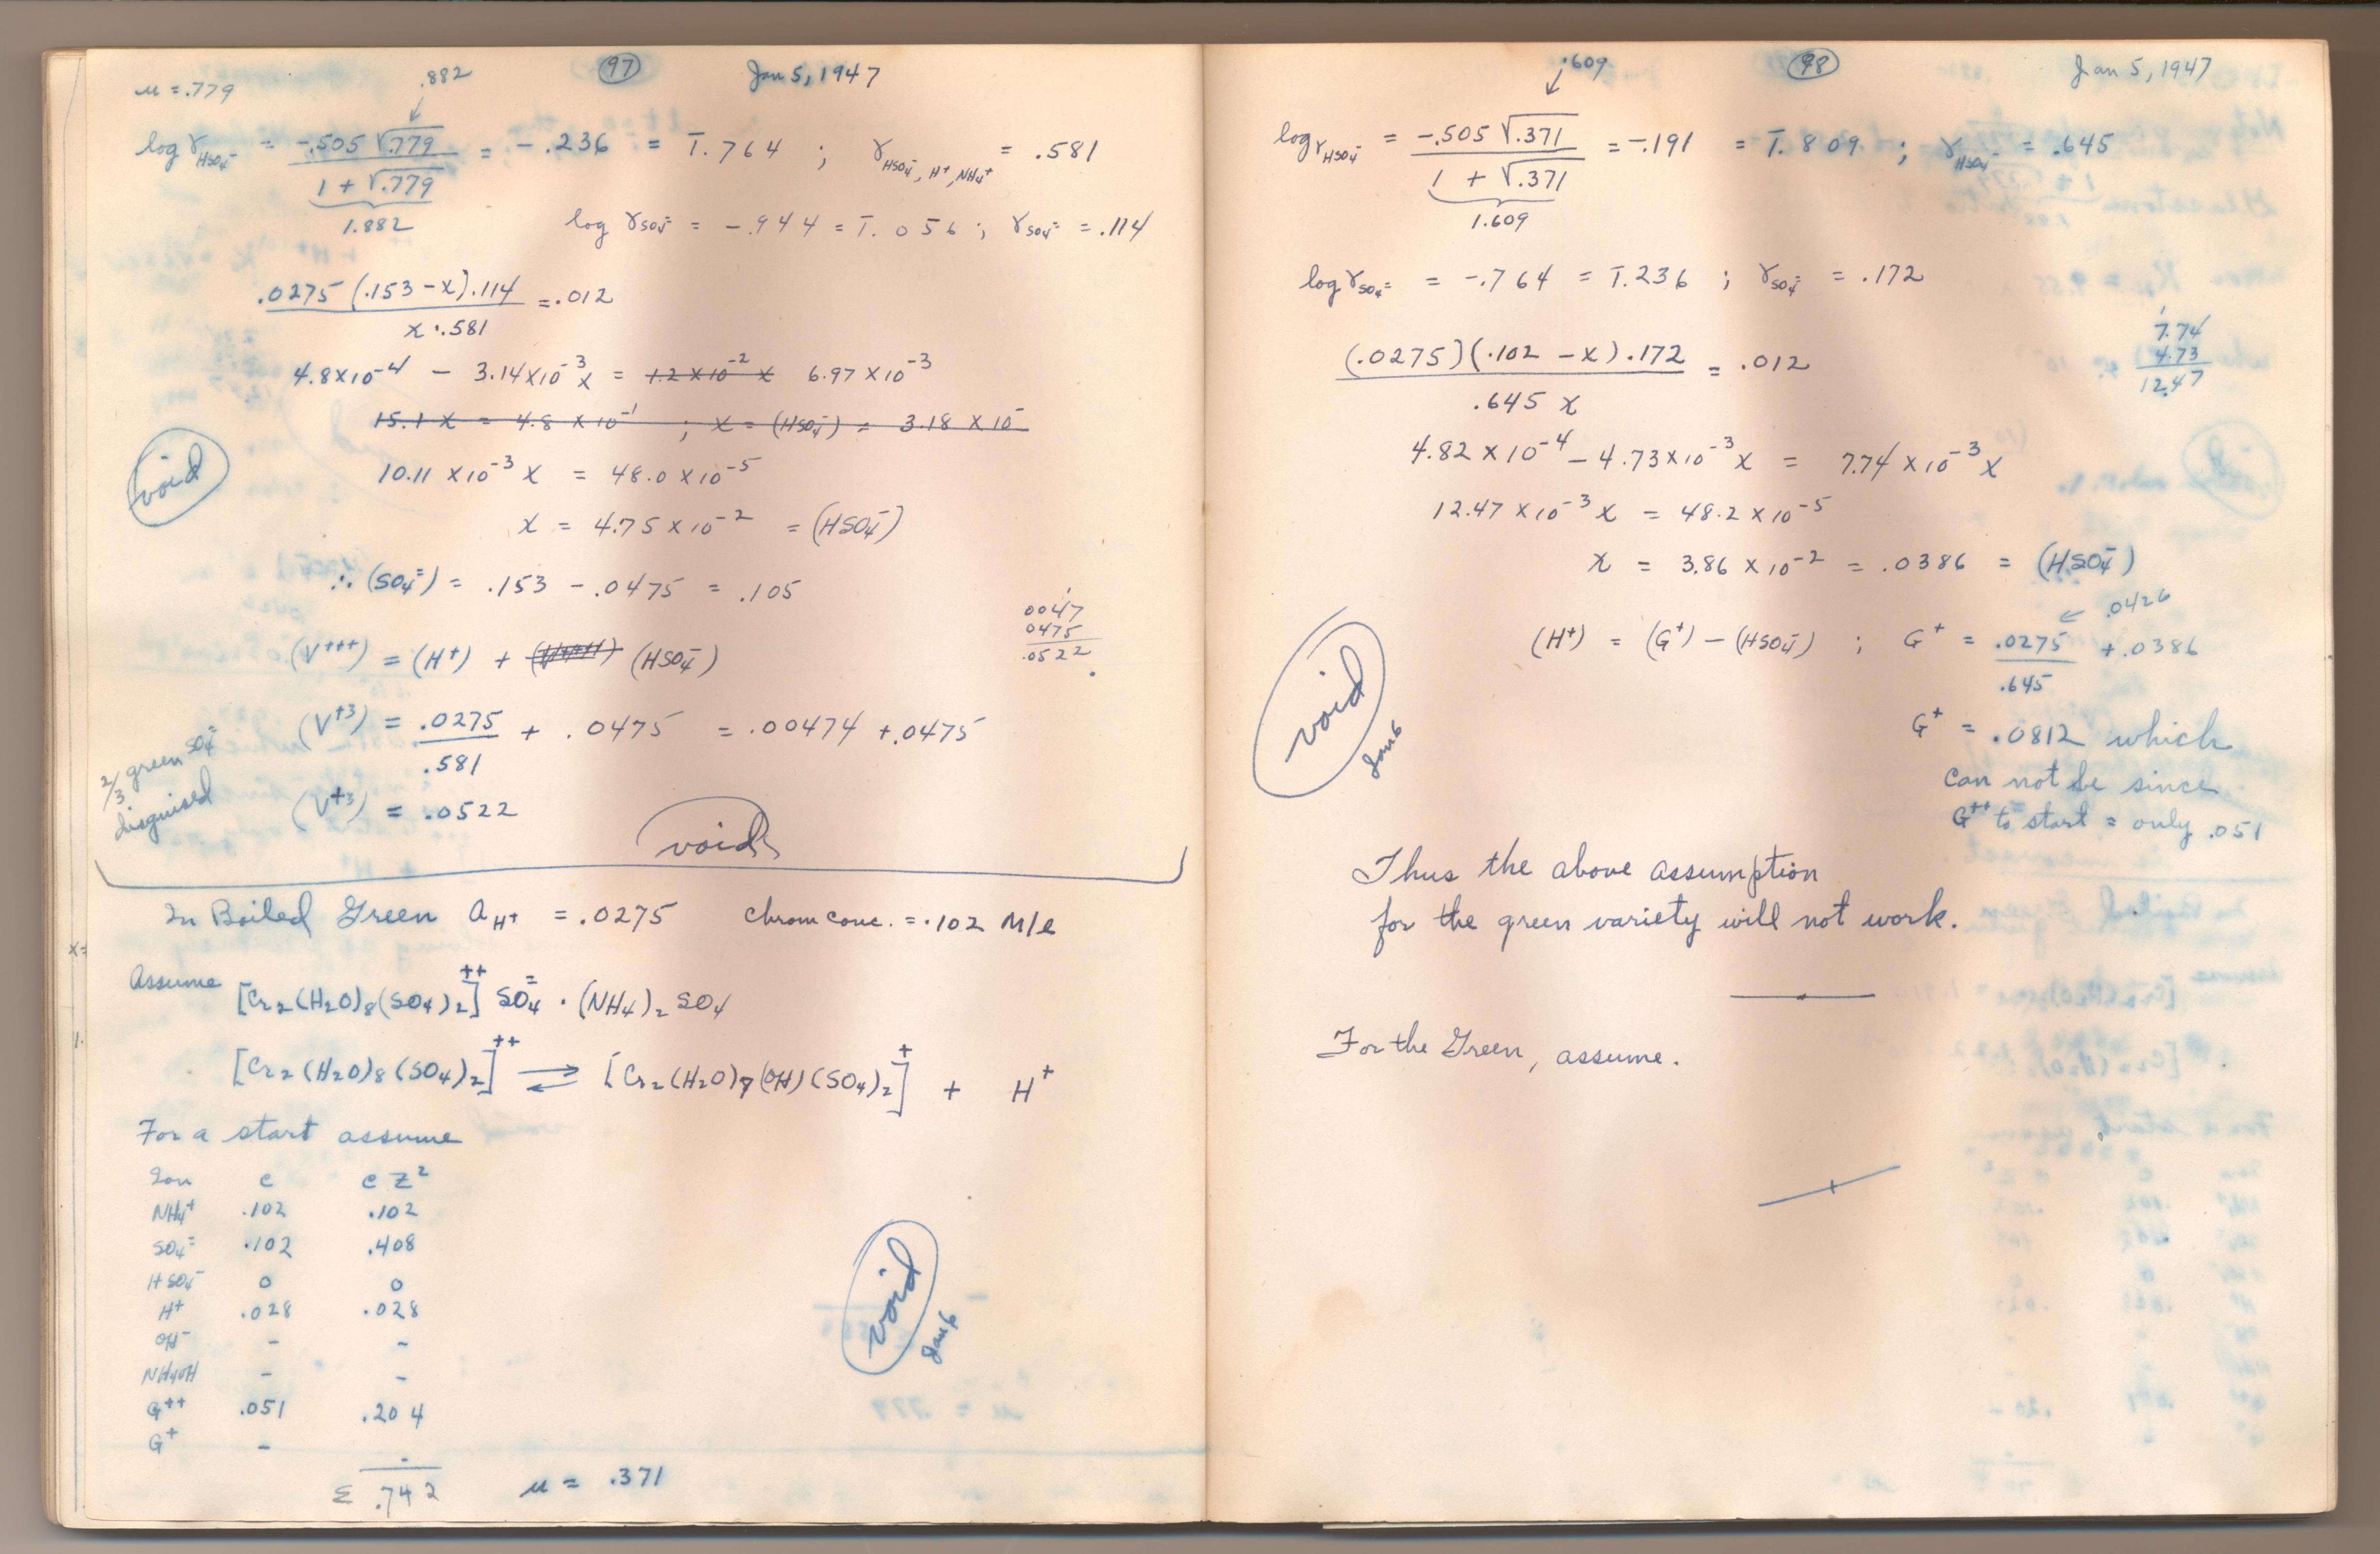 μ = .779
.882
97
Jan 5, 1947
log γHSO4- = -.505 √.779 / 1 + √.779 = -.236 = T.764 ; γHSO4-, H+, NH4+ = .581
1.882
log γSO4= = -.944 = T.056 ; γSO4= = .114
.0275 (.153 - x) .114 / x · .581 = .012
4.8x10-4 - 3.14x10-3 x = 1.2 x 10-2 x 6.97 x 10-3
15.1 x = 4.8 x 10-1 ; x = (HSO4-) = 3.18 x 10-
10.11 x 10-3 x = 48.0 x 10-5
void
x = 4.75 x 10-2 = (HSO4-)
∴ (SO4=) = .153 - .0475 = .105
0047
0475
.0522
(V+++) = (H+) + (HSO4-)
(V+3) = .0275 / .581 + .0475 = .00474 + .0475
2/3 green SO4=
disguised
(V+3) = .0522
void
In Boiled Green aH+ = .0275 chrom conc. = .102 M/l
x=
Assume [Cr2(H2O)8(SO4)2]++ SO4= · (NH4)2SO4
1.
[Cr2(H2O)8(SO4)2]++ ⇌ [Cr2(H2O)7(OH)(SO4)2]+ + H+
For a start assume
Ion c cZ2
NH4+ .102 .102
SO4= .102 .408
HSO4- 0 0
H+ .028 .028
OH- - -
NH4OH - -
G++ .051 .204
G+ -
Σ .742 μ = .371
void
Jan 6
.609
98
Jan 5, 1947
log γHSO4- = -.505 √.371 / 1 + √.371 = -.191 = T.809 ; γHSO4- = .645
1.609
log γSO4= = -.764 = T.236 ; γSO4= = .172
7.74
4.73
12.47
(.0275)(.102 - x) .172 / .645 x = .012
4.82 x 10-4 - 4.73x10-3 x = 7.74 x 10-3 x
12.47 x 10-3 x = 48.2 x 10-5
x = 3.86 x 10-2 = .0386 = (HSO4-)
← .0426
(H+) = (G+) - (HSO4-) ; G+ = .0275 / .645 + .0386
void
Jan 6
G+ = .0812 which
can not be since
G++ to start = only .051
Thus the above assumption
for the green variety will not work.
For the Green, assume.